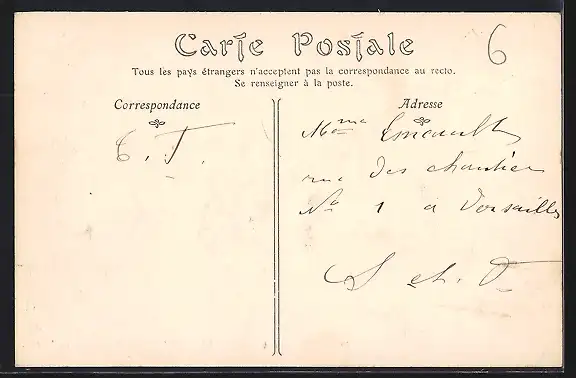 Carte Postale
6
Tous les pays étrangers n'acceptent pas la correspondance au recto.
Se renseigner à la poste.
Correspondance
Adresse
E. T.
Mme
rue des chantier
No 1 a Versailles
S et. O